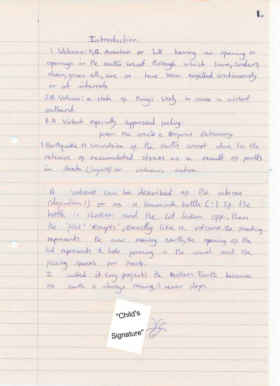 1.
Introduction.
1. Volcano: Mountain or hill having an opening or
openings in the earth's crust through which lava, cinders,
steam, gases etc, are or have been expelled continuously
or at intervals.
2. A volcano a state of things likely to cause a violent
outburst.
3. A violent especially suppressed feeling.
from the Oxford Dictionary.
Earthquake: A convulsion of the earth's crust due to the
release of accumulated stress as a result of faults
in or volcanic action.
A volcano can be described as the
or as a lemonade bottle. If the
bottle is shaken and the lid taken off, then
the exactly like a volcano, the shaking
represents the moving earth, the opening of the
lid represents a hole forming in the crust and the
I called it my project the Restless Earth because
the earth is always moving, it never stops.
"Child's
Signature"